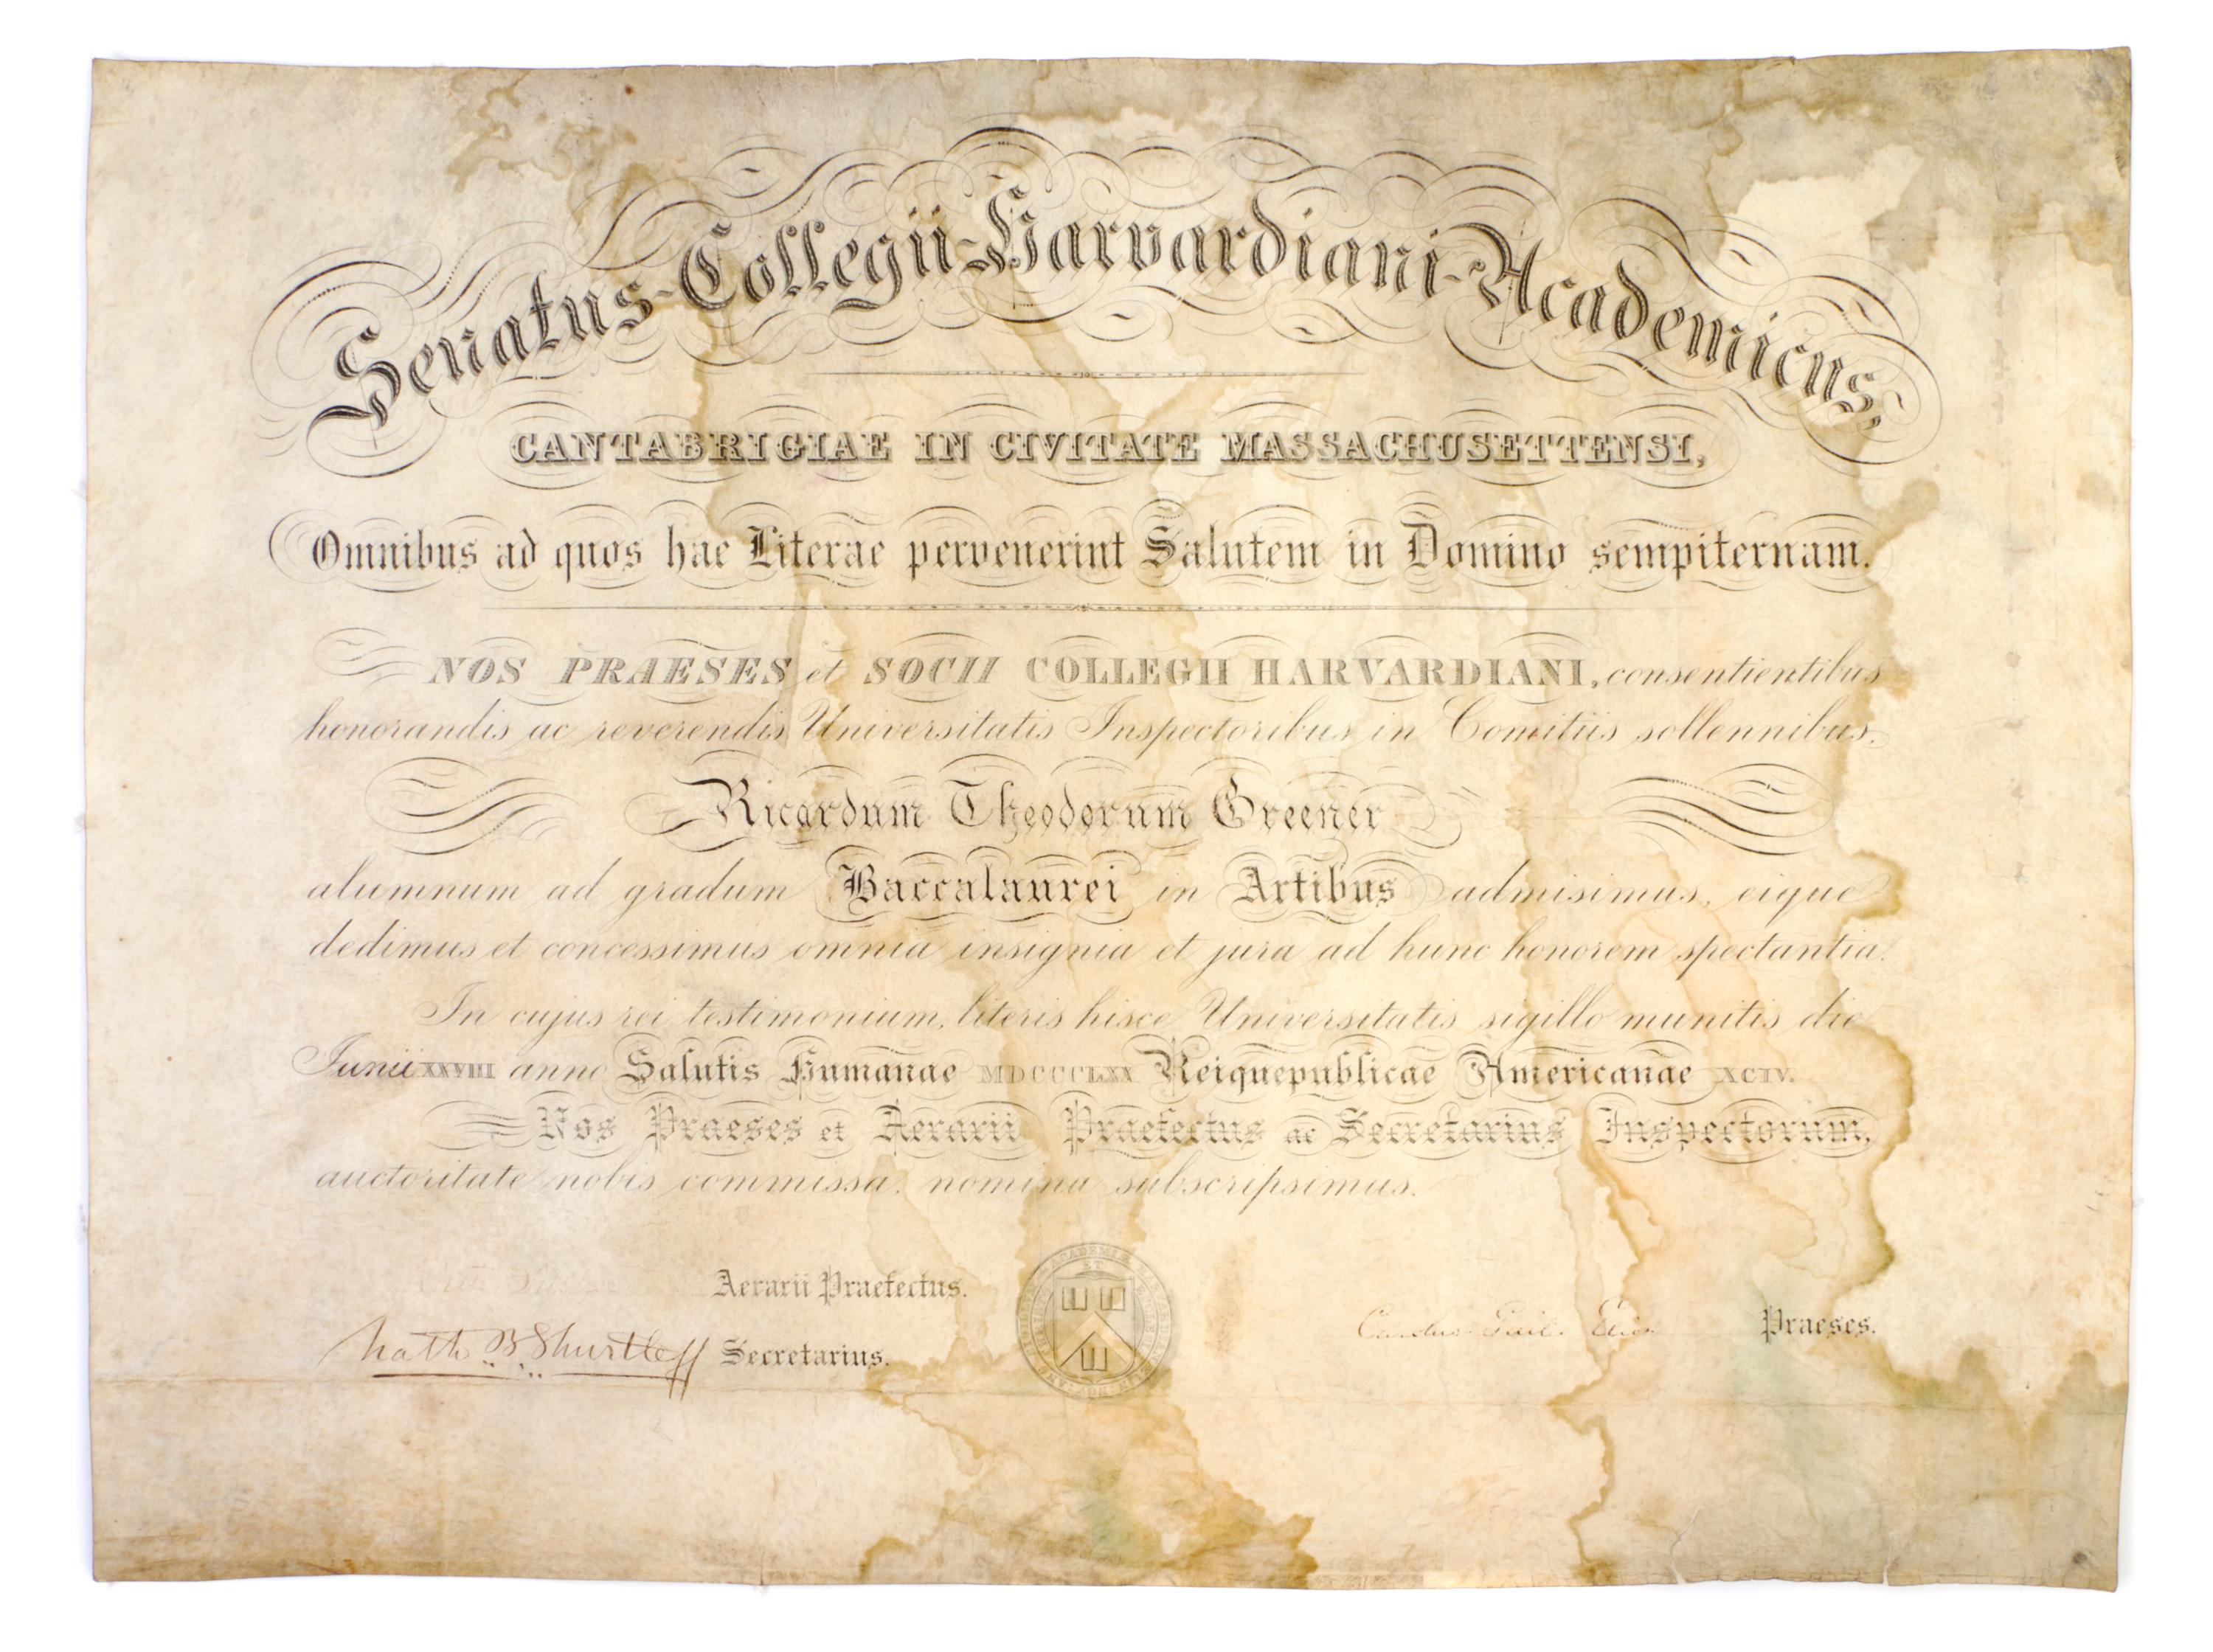 Senatus-Collegii-Harvardiani-Academicus,
CANTABRIGIAE IN CIVITATE MASSACHUSETTENSI,
Omnibus ad quos hae Literae pervenerint Salutem in Domino sempiternam.
NOS PRAESES et SOCII COLLEGII HARVARDIANI, consentientibus
honorandis ac reverendis Universitatis Inspectoribus in Comitiis sollennibus.
Ricardum Theodorum Greener
alumnum ad gradum Baccalaurei in Artibus admisimus, eique
dedimus et concessimus omnia insignia et jura ad hunc honorem spectantia.
In cujus rei testimonium, literis hisce Universitatis sigillo munitis die
Junii XXVIII anno Salutis Humanae MDCCCLXX Reiquepublicae Americanae XCIV.
Nos Praeses et Aerarii Praefectus ac Secretarius Inspectorum,
auctoritate nobis commissa, nomina subscripsimus.
Aerarii Praefectus.
Nath. B. Shurtleff Secretarius.
Praeses.